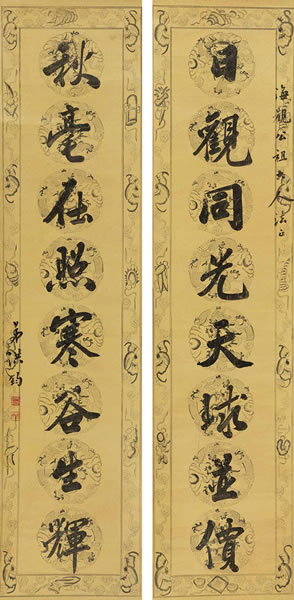 海觀公祖大人法正
日觀同光天球並價
秋毫在照寒谷生輝
弟洪鈞